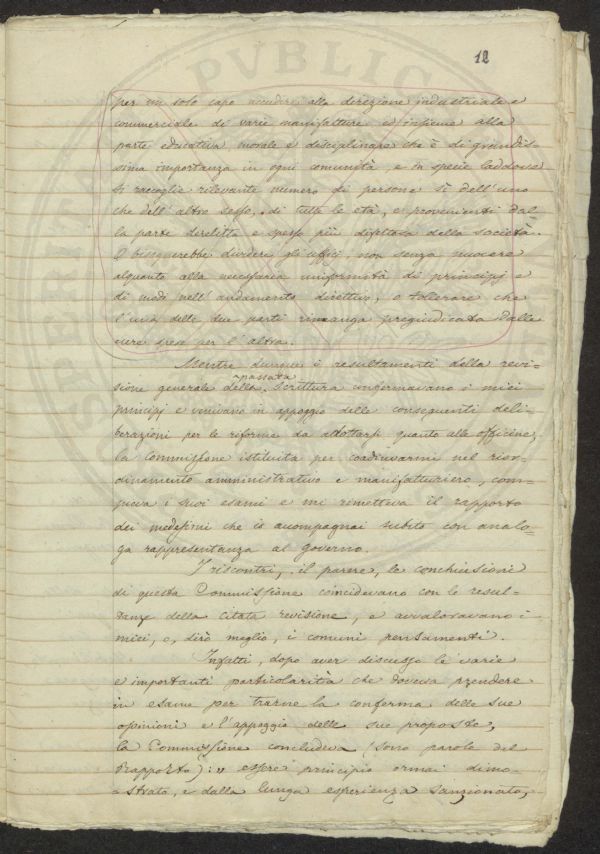 12
per un solo capo accudire alla direzione industriale e
commerciale di varie manifatture ed insieme alla
parte educativa morale e disciplinare che è di grandis-
sima importanza in ogni comunità, e in specie laddove
si raccoglie rilevante numero di persone sì dell'uno
che dell'altro sesso, di tutte le età, e provenienti dal-
la parte derelitta e spesso più difettosa della società.
O bisognerebbe dividere gli uffici, non senza nuocere
alquanto alla necessaria uniformità di principj e
di modi nell'andamento direttivo, o tollerare che
l'una delle due parti rimanga pregiudicata dalle
cure spese per l'altra.
Mentre dunque i resultamenti della revi-
sione generale della passata Scrittura confermavano i miei
principj e venivano in appoggio delle conseguenti deli-
berazioni per le riforme da adottarsi quanto alle officine,
la Commissione istituita per coadiuvarmi nel rior-
dinamento amministrativo e manifatturiero, com-
pieva i suoi esami e mi rimetteva il rapporto
dei medesimi che io accompagnai subito con analo-
ga rappresentanza al governo.
I riscontri, il parere, le conchiusioni
di questa Commissione coincidevano con le resul-
tanze della citata revisione, e avvaloravano i
miei, e, dirò meglio, i comuni pensamenti.
Infatti, dopo aver discusso le varie
e importanti particolarità che doveva prendere
in esame per trarne la conferma delle sue
opinioni e l'appoggio delle sue proposte,
la Commissione concludeva (sono parole del
Rapporto): „ essere principio ormai dimo-
strato, e dalla lunga esperienza sanzionato,